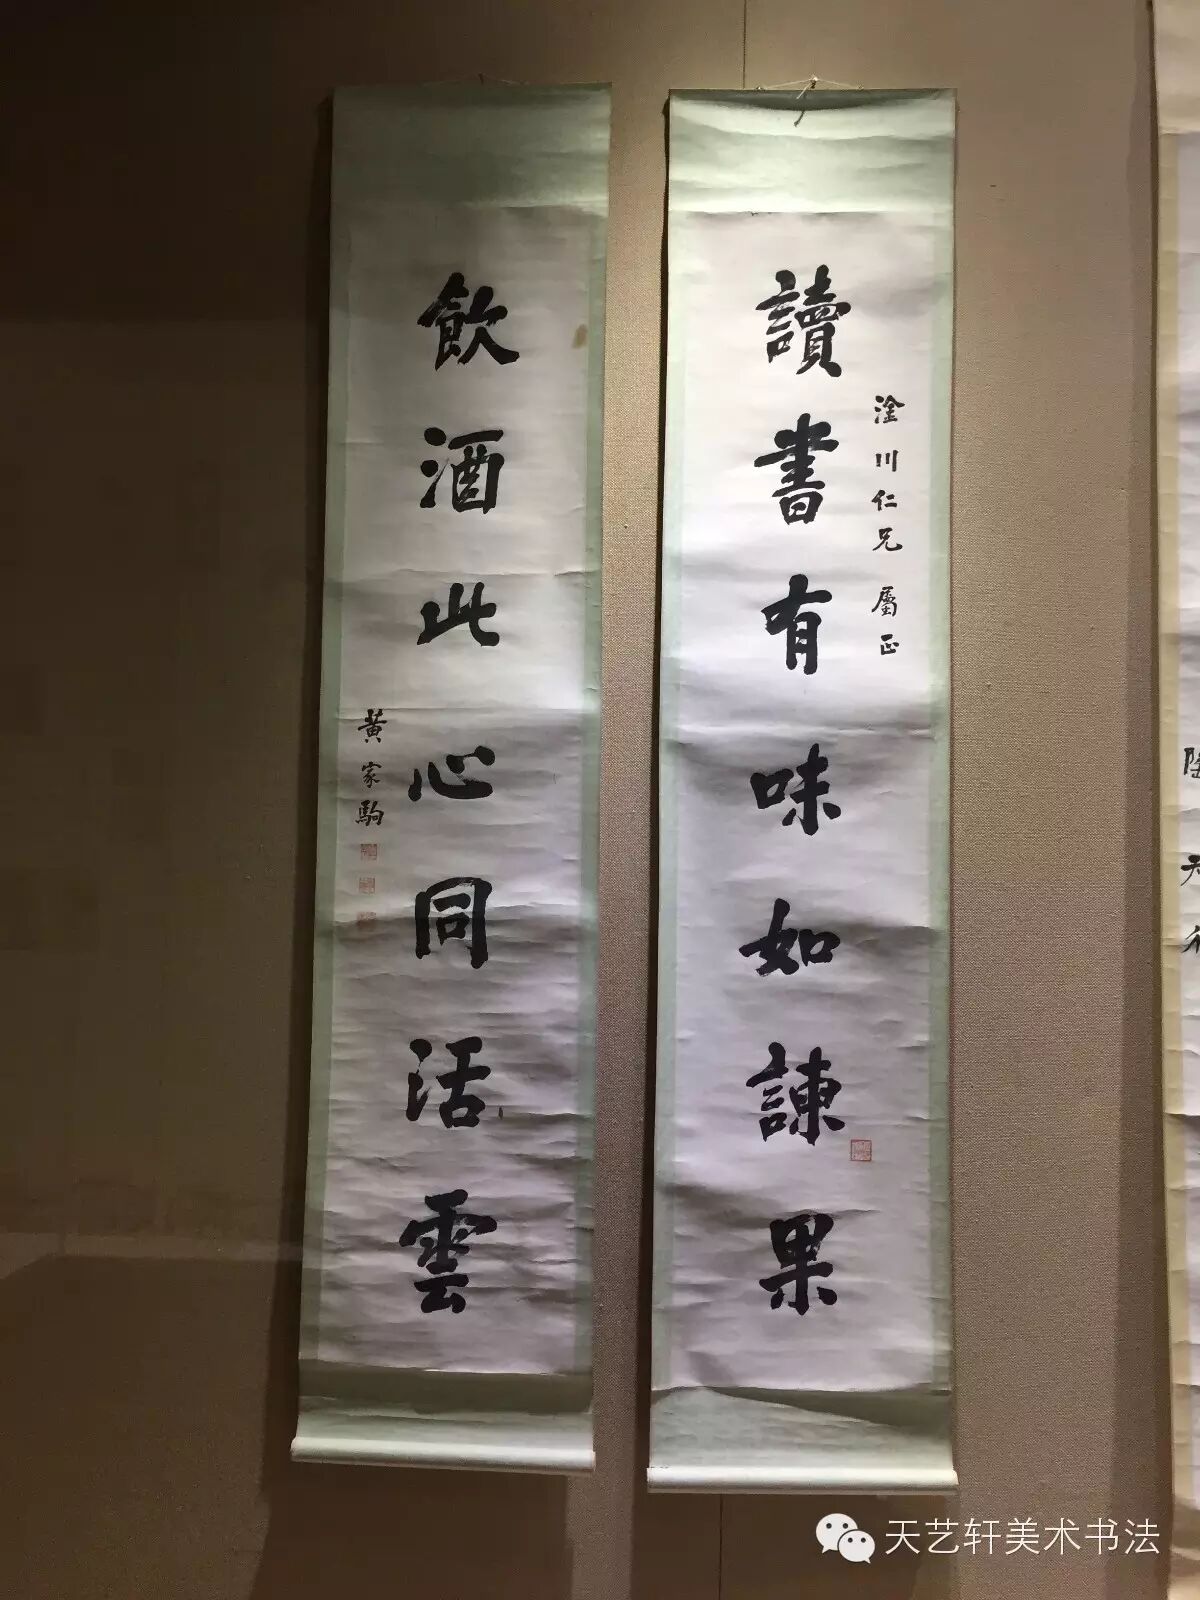 讀書有味如諫果
淦川仁兄 屬正
飲酒此心同活雲
黃家駒
天艺轩美术书法